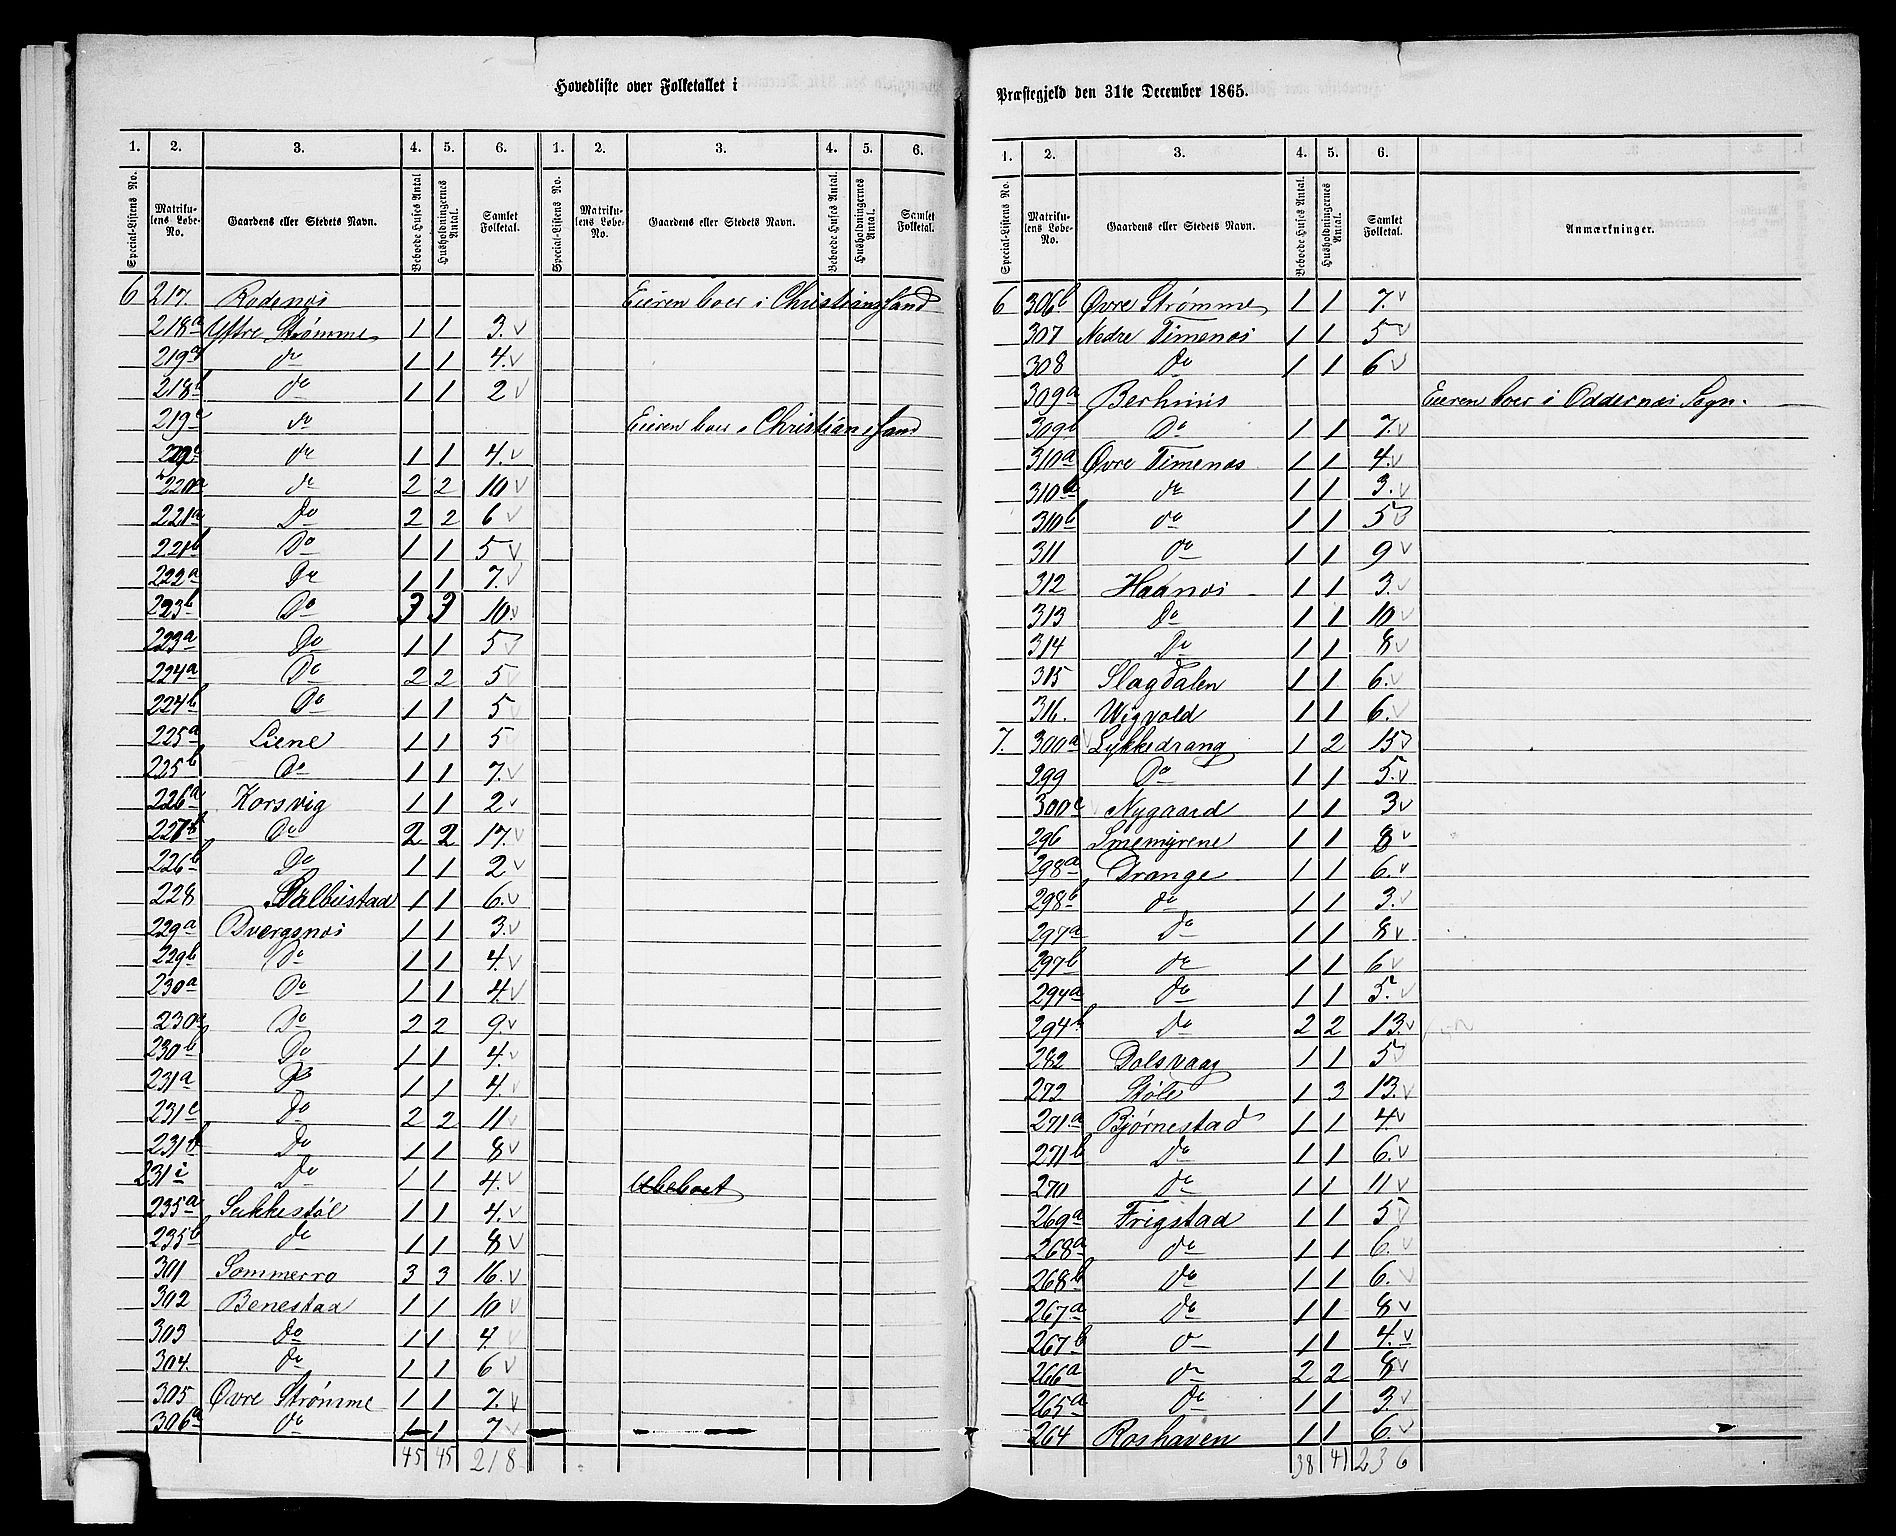 Hovedliste over Folketallet i
1. 2. 3. 4. 5. 6. 1. 2. 3. 4. 5. 6.
Special-Listens No. Matrikulens Løbe-No. Gaardens eller Stedets Navn. Beboede Huses Antal Husholdningernes Antal. Samlet Folketal. Special-Listens No. Matrikulens Løbe-No. Gaardens eller Stedets Navn. Beboede Huses Antal. Husholdningernes Antal. Samlet Folketal.
6 217. Rodenes Eieren boer i Christianssand
218a Ytre Strømme 1 1 3.
219b do 1 1 4.
218b do 1 1 2
219a do Eieren boer i Christianssand
219c do 1 1 4.
220a do 2 2 10
221a Do 2 2 6
221b Do 1 1 5
222a Do 1 1 7.
223b Do 3 3 10.
223a Do 1 1 5
224a Do 2 2 5
224b Do 1 1 5
225a Liene 1 1 5
225b Do 1 1 7.
226a Korsvig 1 1 2
227 Do 2 2 17.
226b Do 1 1 2
228 Stalbustad 1 1 6.
229a Dvergsnes 1 1 3.
229b Do 1 1 4.
230a Do 1 1 4.
230a Do 2 2 9.
230b Do 1 1 4.
231a Do 1 1 4.
231c Do 2 2 11
231b Do 1 1 8
231i Do 1 1 4. Ubeboet
235a Sukkestøl 1 1 4.
235b do 1 1 8
301 Sommerro 3 3 16.
302 Benestad 1 1 10
303 Do 1 1 4.
304. do 1 1 6
305 Øvre Strømme 1 1 7.
306a do 1 1 7
45 45 218
Præstegjeld den 31te December 1865.
1. 2. 3. 4. 5. 6.
Special-Listens No. Matrikulens Løbe-No. Gaardens eller Stedets Navn. Beboede Huses Antal. Husholdningernes Antal. Samlet Folketal. Anmærkninger.
6 306b Øvre Strømme 1 1 7.
307 Nedre Timenes 1 1 5
308 Do 1 1 6
309a Berhuus Eieren boer i Oddernes Sogn.
309b Do 1 1 7.
310a Øvre Timenes 1 1 4.
310b do 1 1 3.
310b do 1 1 5
311 do 1 1 9
312 Haanes 1 1 3.
313 Do 1 1 10
314 Do 1 1 8
315 Slagdalen 1 1 6.
316. Wigvold 1 1 6.
7. 300a Lykkedrang 1 2 15
299 Do 1 1 5.
300c Nygaard 1 1 3
296 Smemyrene 1 1 8
298a Drange 1 1 6.
298b do 1 1 3.
297a do 1 1 8
297b do 1 1 6
294a do 1 1 5.
294b do 2 2 13.
282 Dolsvaag 1 1 5
272 Støle 1 3 13.
271a Bjørnestad 1 1 4
271b Do 1 1 6.
270 do 1 1 11
269a Frigstad 1 1 5
268a do 1 1 6.
268b do 1 1 6.
267a do 1 1 8
267b do 1 1 4.
266a do 2 2 8
265a do 1 1 3.
264 Roshaven 1 1 6.
38 41 236